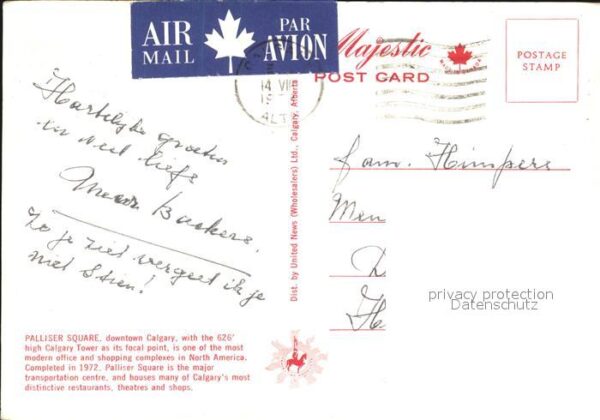 AIR MAIL
PAR AVION
Majestic
POST CARD
MADE IN CANADA
POSTAGE STAMP
14 VII
Hartelijke groeten
en veel liefs
Backers.
Zo je ziet vergeet ik je
niet Stien!
Fam. Himpers
Dist. by United News (Wholesalers) Ltd., Calgary, Alberta
privacy protection
Datenschutz
PALLISER SQUARE, downtown Calgary, with the 626'
high Calgary Tower as its focal point, is one of the most
modern office and shopping complexes in North America.
Completed in 1972. Palliser Square is the major
transportation centre, and houses many of Calgary's most
distinctive restaurants, theatres and shops.